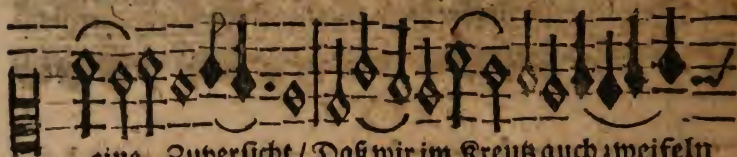 eine Zuversicht / Daß wir im Kreutz auch zweifeln